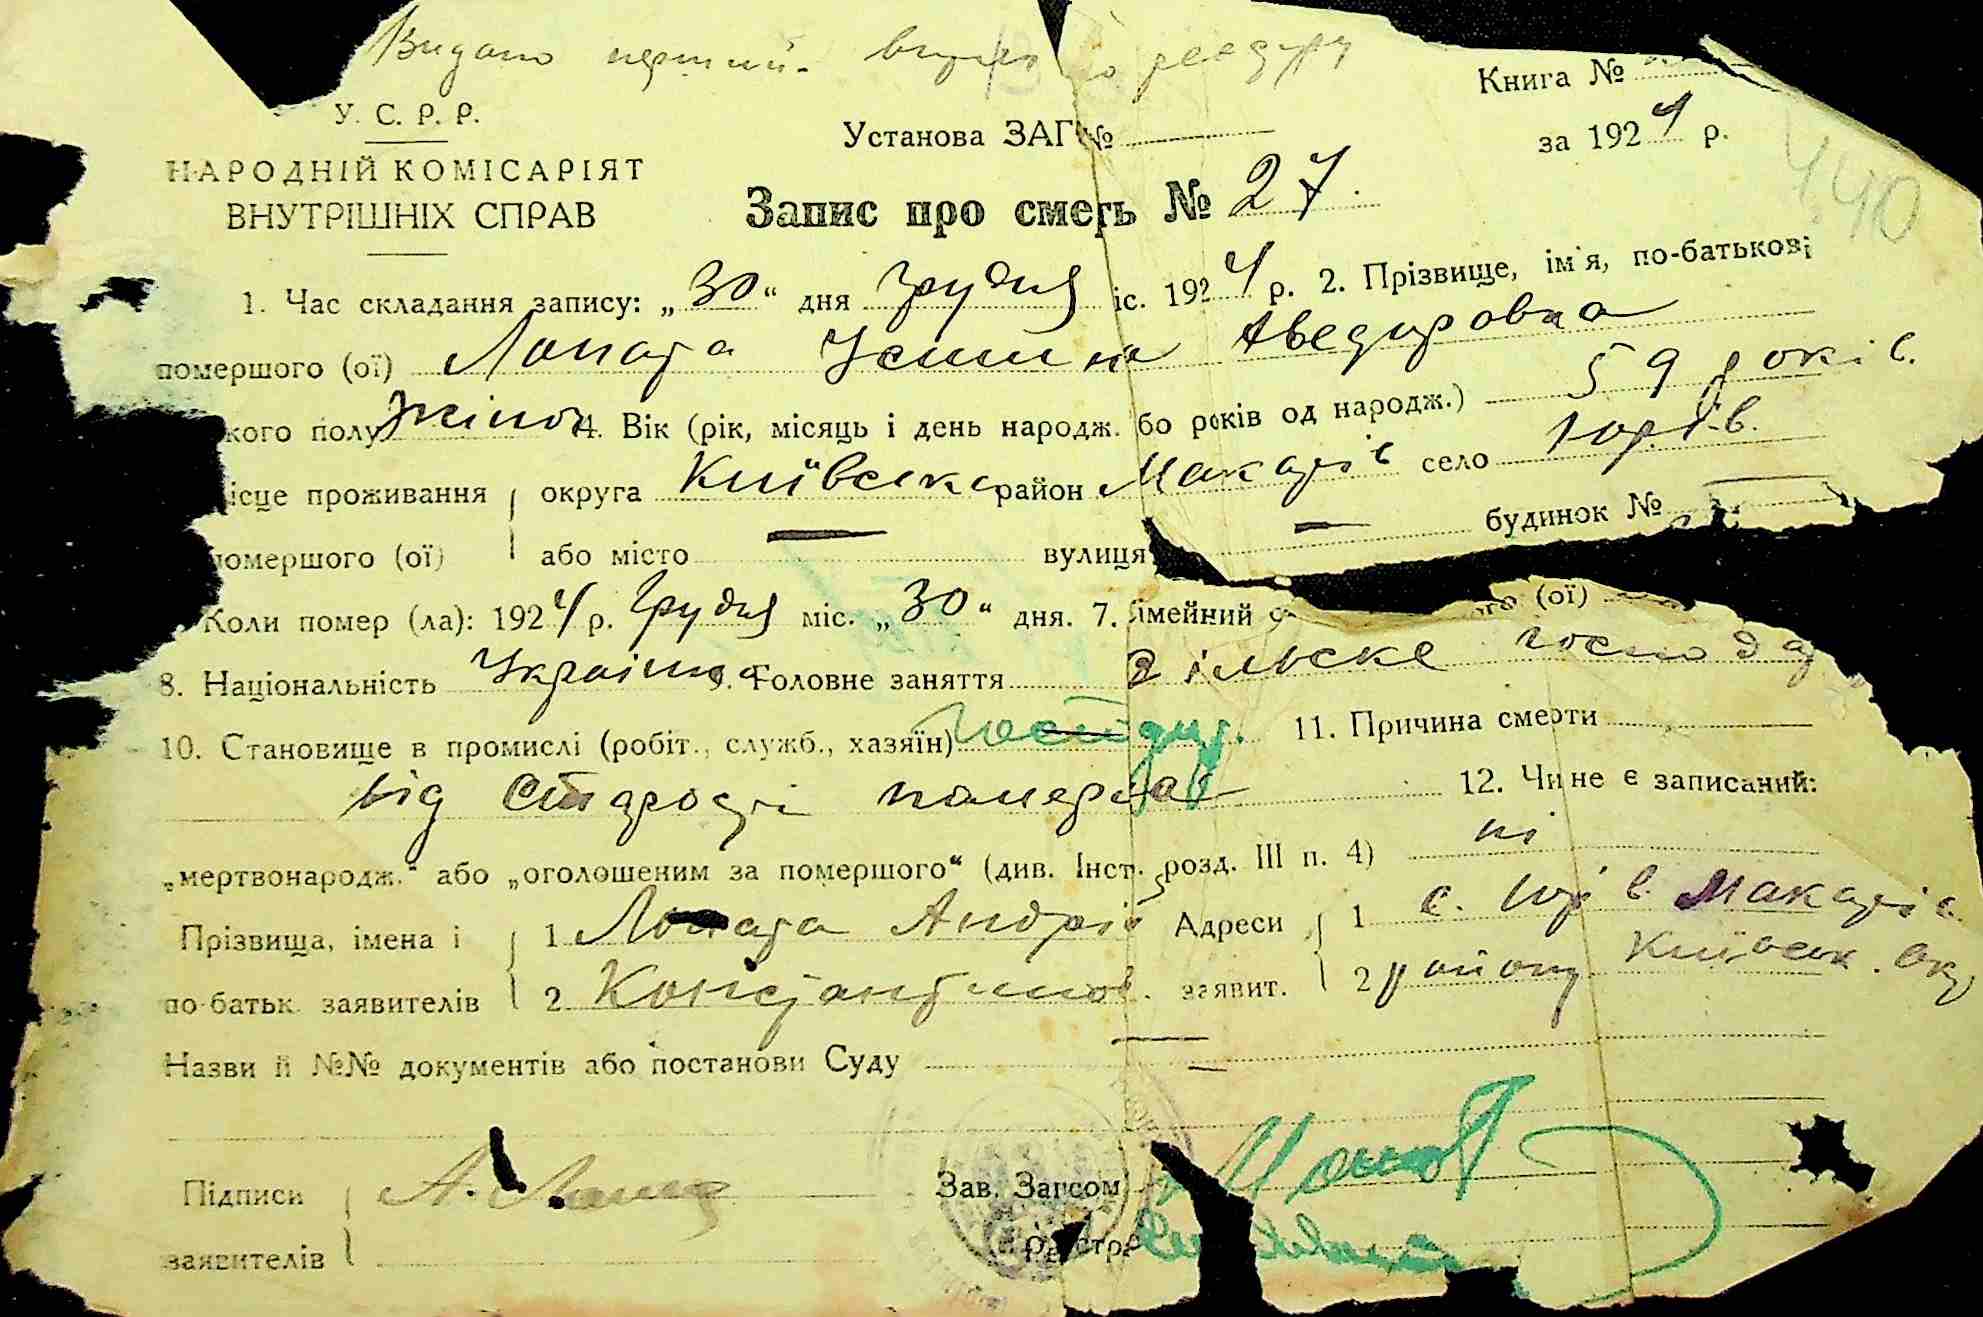 Видано
Книга №
У. С. Р. Р.
Установа ЗАГ №
за 1924 р.
НАРОДНІЙ КОМІСАРІЯТ
ВНУТРІШНІХ СПРАВ
Запис про смерть № 27.
440
1. Час складання запису: „30“ дня грудня іс. 1924 р. 2. Прізвище, ім'я, по-батькові
помершого (ої) Лопата Устина
кого полу жіноч 4. Вік (рік, місяць і день народж. бо років од народж.) 59 років.
ісце проживання округа Київська район Макарів село Юрів.
омершого (ої) або місто — вулиця — будинок №
Коли помер (ла): 1924 р. Грудня міс. „30“ дня. 7. імейний с го (ої)
8. Національність Україн 9. Головне заняття сільске господар
10. Становище в промислі (робіт., служб., хазяїн) господар. 11. Причина смерти
від старости померла 12. Чи не є записаний:
„мертвонародж.“ або „оголошеним за помершого“ (див. Інст. розд. III п. 4) ні
Прізвища, імена і 1 Лопата Андрій Адреси 1 с. Юрів Макарів
по-батьк. заявителів 2 Константинов. заявит. 2 району Київськ. окр
Назви й №№ документів або постанови Суду —
Підписи А. Лопата Зав. Загсом
заявителів Реєстр